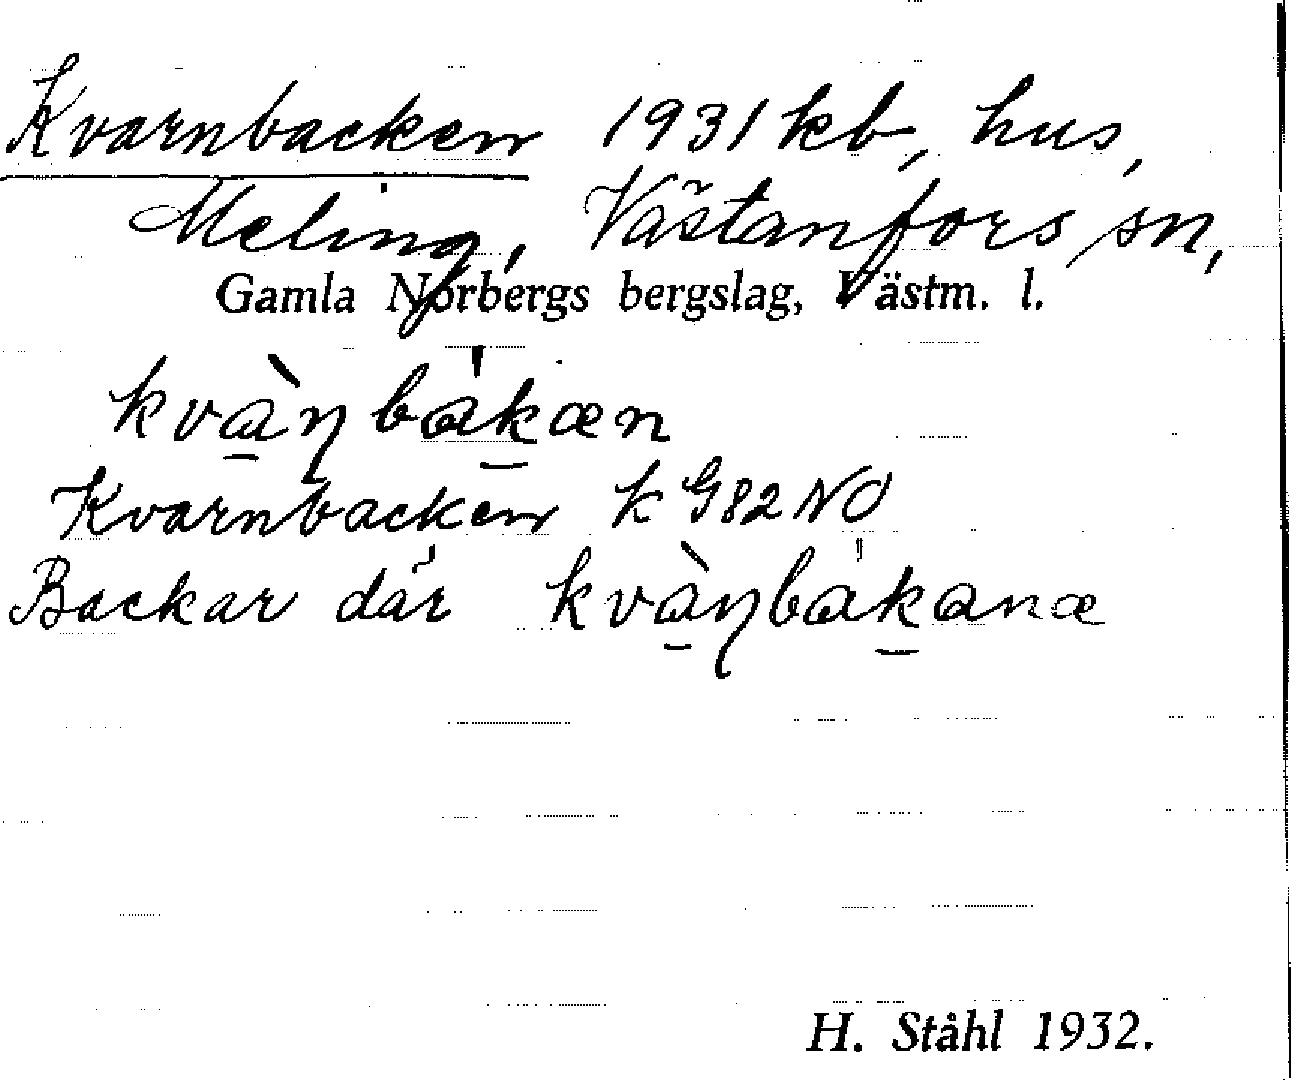 Kvarnbacken 1931 kb, hus,
Meling, Västanfors sn,
Gamla Norbergs bergslag, Västm. l.
kvàṇbákæn
Kvarnbacken k G82 NO
Backar där kvàṇbákanæ
H. Ståhl 1932.